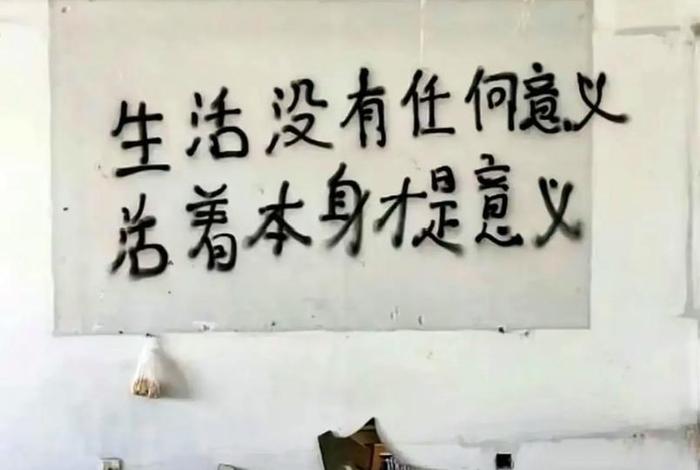 生活没有任何意义
活着本身才是意义